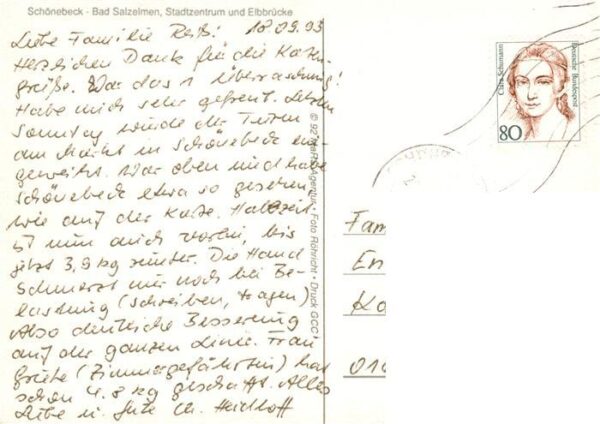 Schönebeck - Bad Salzelmen, Stadtzentrum und Elbbrücke
18.09.93
Liebe Familie Reiß!
Herzlichen Dank für die Karten-
grüße. War das 1 Überraschung!
Habe mich sehr gefreut. Letzten
Sonntag wurde der Turm
am Markt in Schönebeck ein-
geweiht. War oben und habe
Schönebeck etwa so gesehen,
wie auf der Karte. Halbzeit
ist nun auch vorbei, bis
jetzt 3,9 kg runter. Die Hand
schmerzt nur noch bei Be-
lastung (schreiben, tragen)
Also deutliche Besserung
auf der ganzen Linie. Frau
(Zimmergefährtin) hat
schon 4,8 kg geschafft. Alles
Liebe u. Gute Ch.
© 92 Agentur · Foto Röhricht · Druck GCC
Clara Schumann
Deutsche Bundespost
80
Fam
En
Ka
010